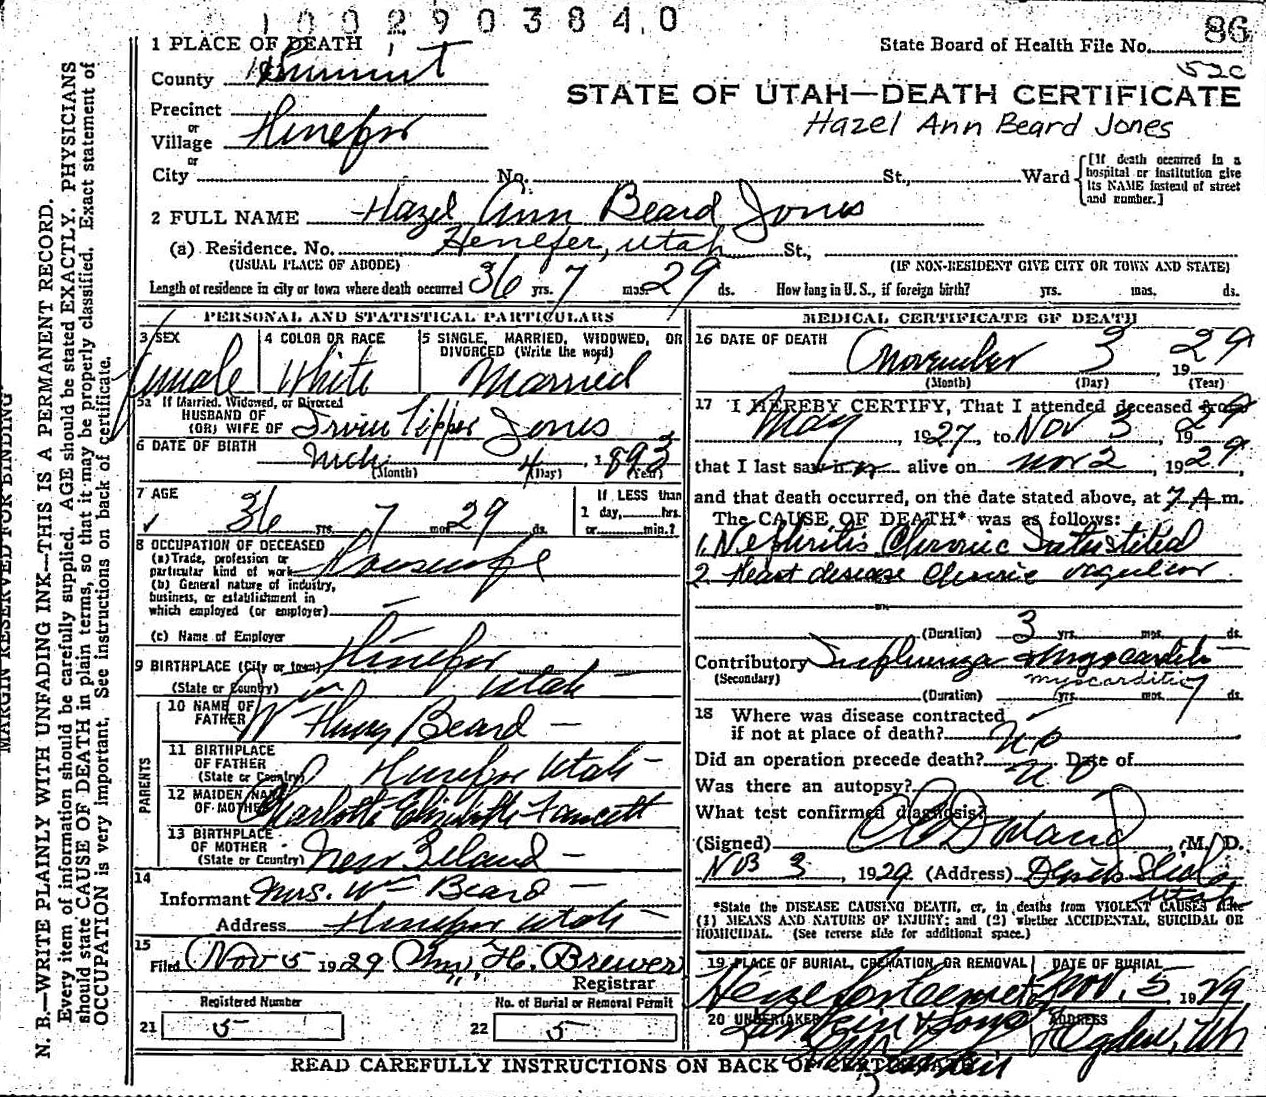 1002903840
86
1 PLACE OF DEATH
State Board of Health File No.
County Summit
52c
STATE OF UTAH—DEATH CERTIFICATE
Precinct
Hazel Ann Beard Jones
or
Village Henefer
or
City No. St., Ward
[If death occurred in a hospital or institution give its NAME instead of street and number.]
2 FULL NAME Hazel Ann Beard Jones
(a) Residence. No. Henefer, Utah St.,
(USUAL PLACE OF ABODE) (IF NON-RESIDENT GIVE CITY OR TOWN AND STATE)
Length of residence in city or town where death occurred 36 yrs. 7 mos. 29 ds. How long in U. S., if foreign birth? yrs. mos. ds.
PERSONAL AND STATISTICAL PARTICULARS
3 SEX 4 COLOR OR RACE 5 SINGLE, MARRIED, WIDOWED, OR DIVORCED (Write the word)
female White Married
5a If Married, Widowed, or Divorced
HUSBAND OF
(OR) WIFE OF Irvin Tipper Jones
6 DATE OF BIRTH Mch 4, 1893
(Month) (Day) (Year)
7 AGE 36 yrs. 7 mos. 29 ds.
If LESS than
1 day, hrs.
or min.?
8 OCCUPATION OF DECEASED
(a) Trade, profession or
particular kind of work Housewife
(b) General nature of industry,
business, or establishment in
which employed (or employer)
(c) Name of Employer
9 BIRTHPLACE (City or town) Henefer
(State or Country) Utah
PARENTS
10 NAME OF
FATHER Wm Henry Beard
11 BIRTHPLACE
OF FATHER
(State or Country) Henefer Utah
12 MAIDEN NAME
OF MOTHER Charlotte Elizabeth Fawcett
13 BIRTHPLACE
OF MOTHER
(State or Country) New Zeland
14
Informant Mrs. Wm Beard
Address Henefer Utah
15
Filed Nov 5 1929 Wm. H. Brewer
Registrar
Registered Number No. of Burial or Removal Permit
21 5 22 5
MEDICAL CERTIFICATE OF DEATH
16 DATE OF DEATH November 3 1929
(Month) (Day) (Year)
17 I HEREBY CERTIFY, That I attended deceased from
May, 1927, to Nov 3, 1929
that I last saw alive on Nov 2, 1929,
and that death occurred, on the date stated above, at 7 A m.
The CAUSE OF DEATH* was as follows:
1. Nephritis Chronic Intustitial
2. Heart disease Chronic
(Duration) 3 yrs. mos. ds.
Contributory Influenza & myocarditis
(Secondary) myocarditis
(Duration) yrs. mos. 7 ds.
18 Where was disease contracted
if not at place of death?
Did an operation precede death? no Date of
Was there an autopsy? no
What test confirmed diagnosis?
(Signed) M. D.
Nov 3, 1929 (Address) Utah
*State the DISEASE CAUSING DEATH, or, in deaths from VIOLENT CAUSES state
(1) MEANS AND NATURE OF INJURY; and (2) whether ACCIDENTAL, SUICIDAL OR
HOMICIDAL. (See reverse side for additional space.)
19 PLACE OF BURIAL, CREMATION, OR REMOVAL DATE OF BURIAL
Henefer Cemetery Nov. 5 1929
20 UNDERTAKER ADDRESS
Larkin & Sons Ogden, Ut
READ CAREFULLY INSTRUCTIONS ON BACK OF CERTIFICATE
MARGIN RESERVED FOR BINDING
N. B.—WRITE PLAINLY WITH UNFADING INK—THIS IS A PERMANENT RECORD.
Every item of information should be carefully supplied. AGE should be stated EXACTLY. PHYSICIANS
should state CAUSE OF DEATH in plain terms, so that it may be properly classified. Exact statement of
OCCUPATION is very important. See instructions on back of certificate.